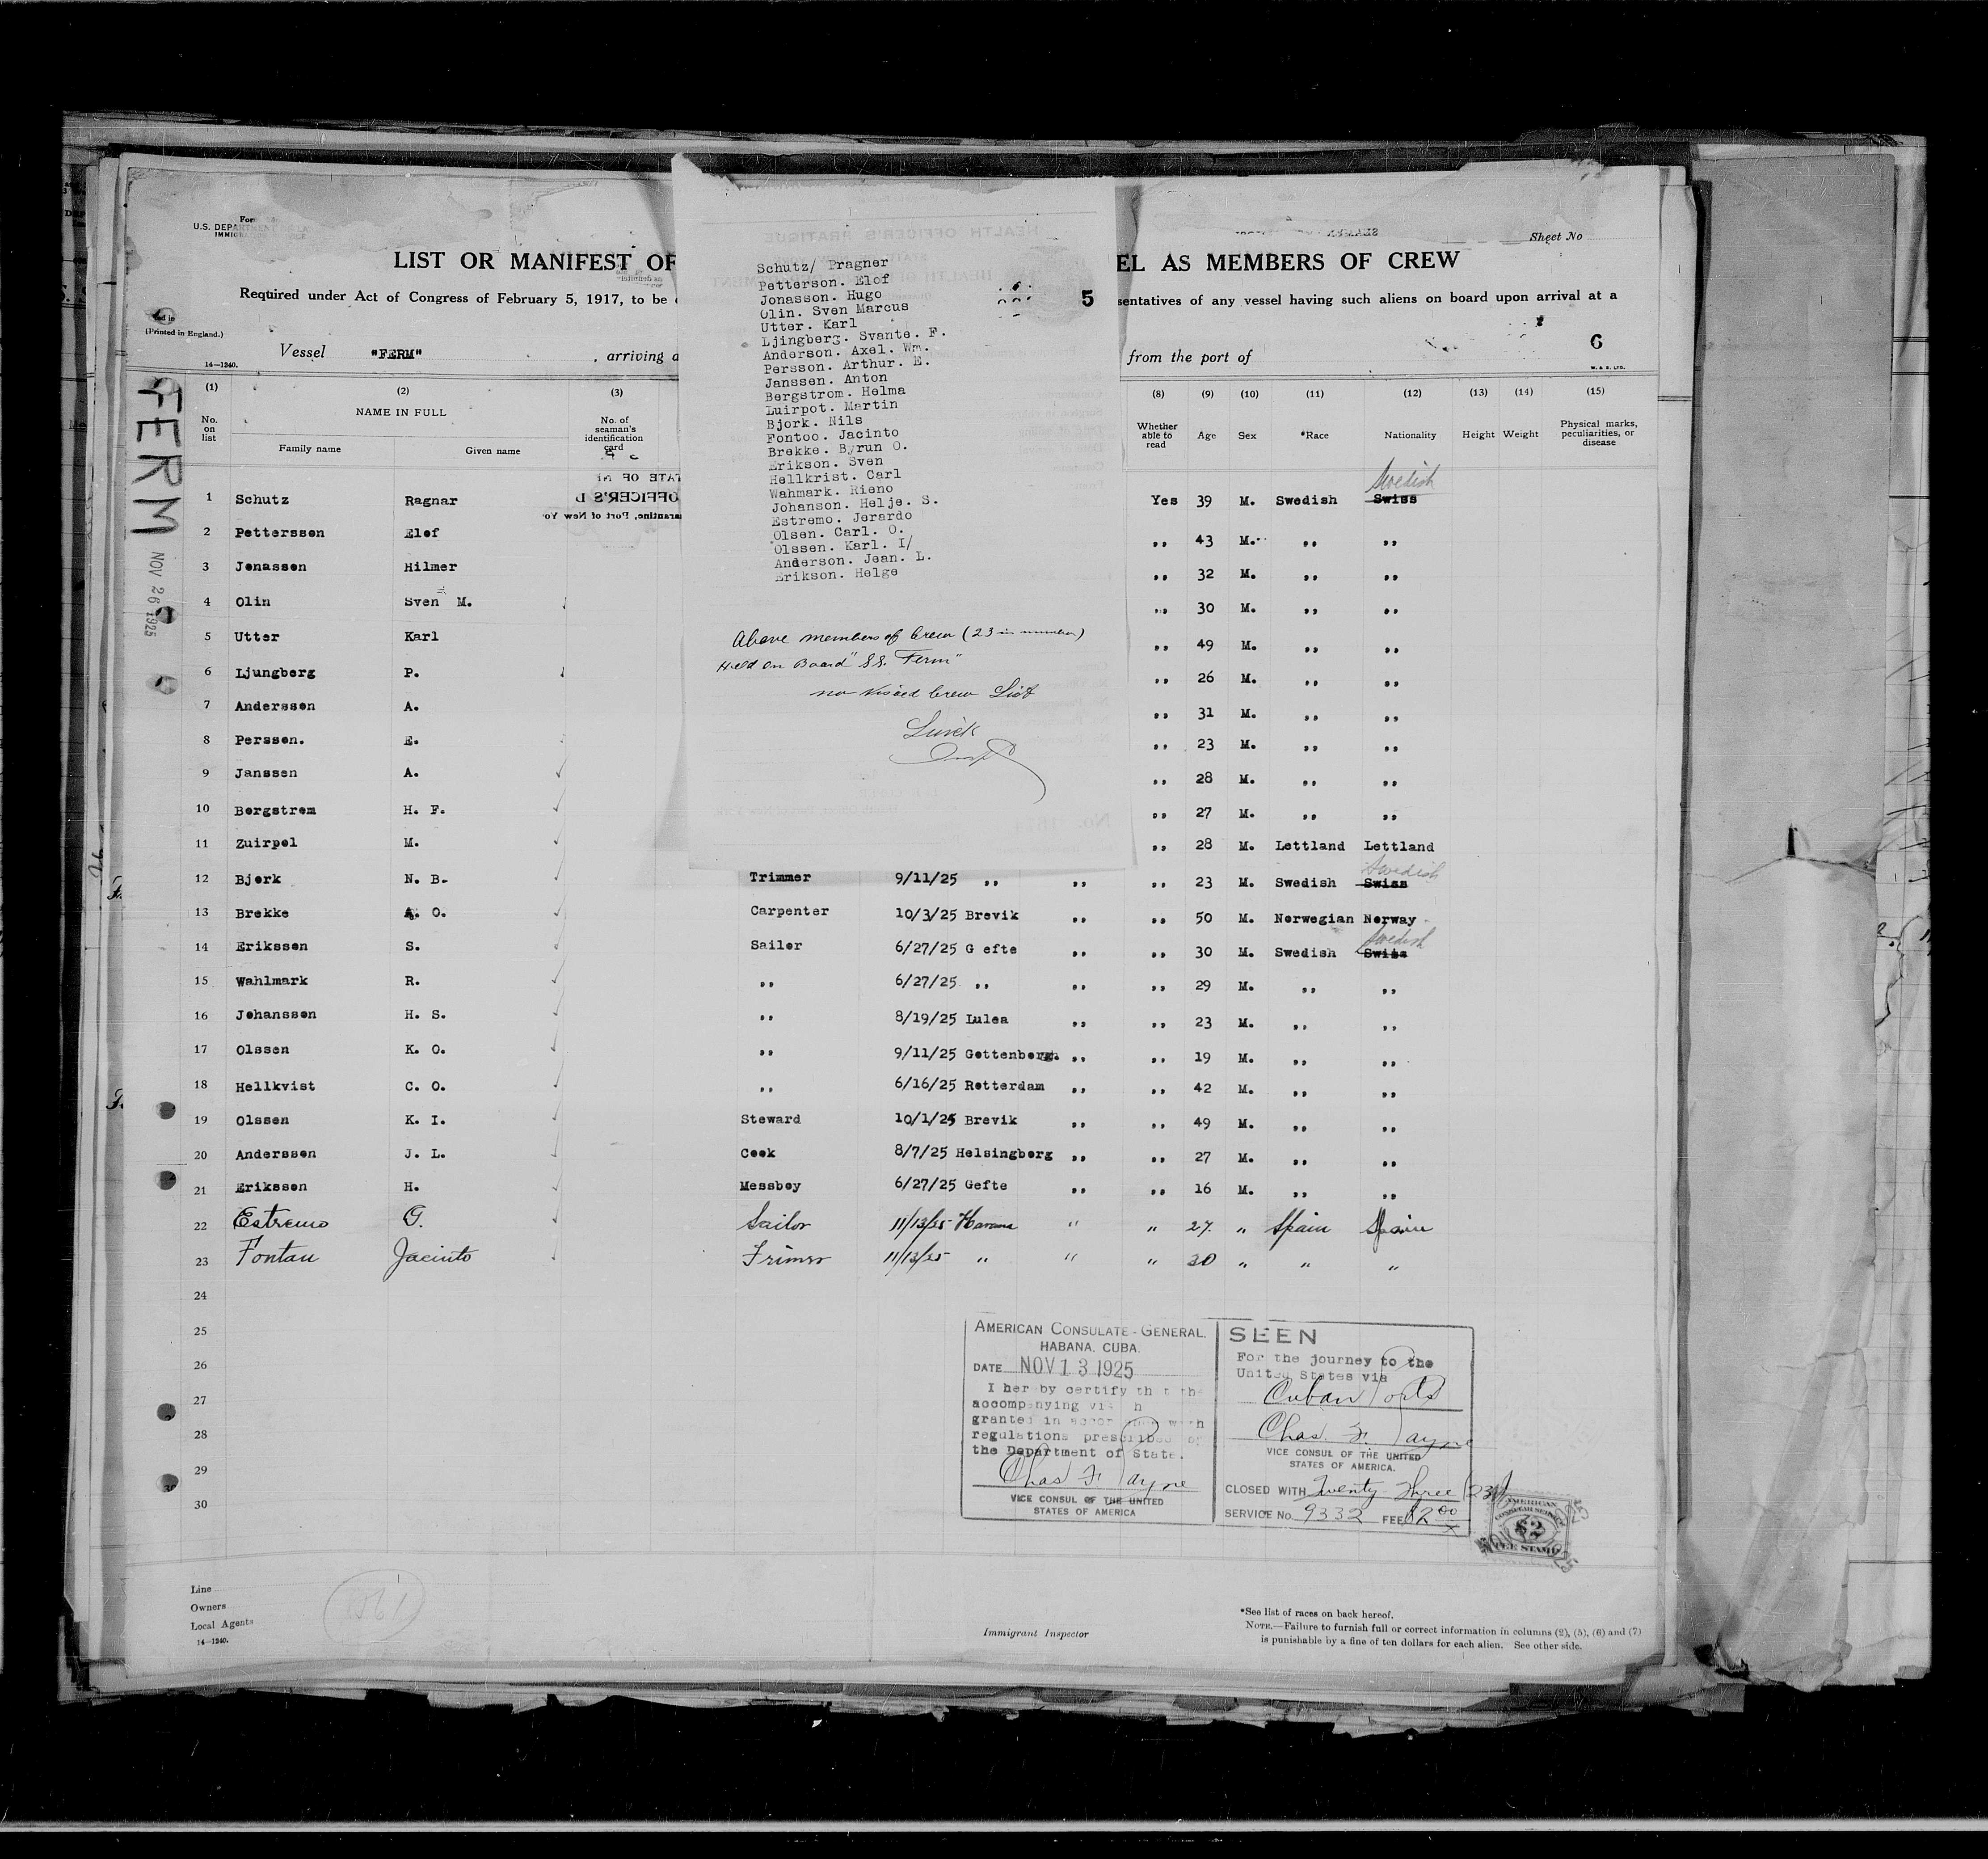 U.S. DEPARTMENT
Sheet No
LIST OR MANIFEST OF EL AS MEMBERS OF CREW
Required under Act of Congress of February 5, 1917, to be 5 sentatives of any vessel having such aliens on board upon arrival at a
(Printed in England.)
Vessel "FERM" , arriving a from the port of 6
14—1240.
W. & S. LTD.
(1) (2) (3) (8) (9) (10) (11) (12) (13) (14) (15)
No. on list NAME IN FULL No. of seaman's identification card Whether able to read Age Sex *Race Nationality Height Weight Physical marks, peculiarities, or disease
Family name Given name
FERM
NOV 26 1925
Schutz/ Pragner
Petterson. Elof
Jonasson. Hugo
Olin. Sven Marcus
Utter. Karl
Ljingberg. Svante. F.
Anderson. Axel. Wm.
Persson. Arthur. E.
Janssen. Anton
Bergstrom. Helma
Luirpot. Martin
Bjork. Nils
Fontoo. Jacinto
Brekke. Byrun O.
Erikson. Sven
Hellkrist. Carl
Wahmark. Rieno
Johanson. Helje. S.
Estremo. Jerardo
Olsen. Carl. O.
Olssen. Karl. I/
Anderson. Jean. L.
Erikson. Helge
Above members of Crew (23 in number)
Held on Board "SS. Ferm"
no visaed Crew List
Insp
Swedish
1 Schutz Ragnar Yes 39 M. Swedish Swiss
2 Petterssen Elof ,, 43 M. ,, ,,
3 Jonassen Hilmer ,, 32 M. ,, ,,
4 Olin Sven M. ,, 30 M. ,, ,,
5 Utter Karl ,, 49 M. ,, ,,
6 Ljungberg P. ,, 26 M. ,, ,,
7 Anderssen A. ,, 31 M. ,, ,,
8 Perssen. E. ,, 23 M. ,, ,,
9 Janssen A. ,, 28 M. ,, ,,
10 Bergstrem H. F. ,, 27 M. ,, ,,
11 Zuirpel M. ,, 28 M. Lettland Lettland
Swedish
12 Bjerk N. B. Trimmer 9/11/25 ,, ,, ,, 23 M. Swedish Swiss
13 Brekke A. O. Carpenter 10/3/25 Brevik ,, ,, 50 M. Norwegian Norway
Swedish
14 Erikssen S. Sailer 6/27/25 G efte ,, ,, 30 M. Swedish Swiss
15 Wahlmark R. ,, 6/27/25 ,, ,, ,, 29 M. ,, ,,
16 Johanssen H. S. ,, 8/19/25 Lulea ,, ,, 23 M. ,, ,,
17 Olssen K. O. ,, 9/11/25 Gottenberg. ,, ,, 19 M. ,, ,,
18 Hellkvist C. O. ,, 6/16/25 Rotterdam ,, ,, 42 M. ,, ,,
19 Olssen K. I. Steward 10/1/25 Brevik ,, ,, 49 M. ,, ,,
20 Anderssen J. L. Cook 8/7/25 Helsingborg ,, ,, 27 M. ,, ,,
21 Erikssen H. Messboy 6/27/25 Gefte ,, ,, 16 M. ,, ,,
22 Estremo G. Sailor 11/13/25 Havana " " 27. " Spain Spain
23 Fontau Jacinto Trimer 11/13/25 " " " 30 " " "
24
25
26
27
28
29
30
AMERICAN CONSULATE-GENERAL,
HABANA. CUBA.
DATE NOV 13 1925
I hereby certify that the
accompanying
granted in with
regulations prescribed by
the Department of State.
Chas F. Payne
VICE CONSUL OF THE UNITED
STATES OF AMERICA
SEEN
For the journey to the
United States via
Cuban Ports
Chas. F. Payne
VICE CONSUL OF THE UNITED
STATES OF AMERICA.
CLOSED WITH Twenty Three (23)
SERVICE No. 9332 FEE $2.00
AMERICAN
CONSULAR SERVICE
$2
FEE STAMP
Line
Owners
Local Agents
14—1240.
Immigrant Inspector
*See list of races on back hereof.
NOTE.—Failure to furnish full or correct information in columns (2), (5), (6) and (7)
is punishable by a fine of ten dollars for each alien. See other side.